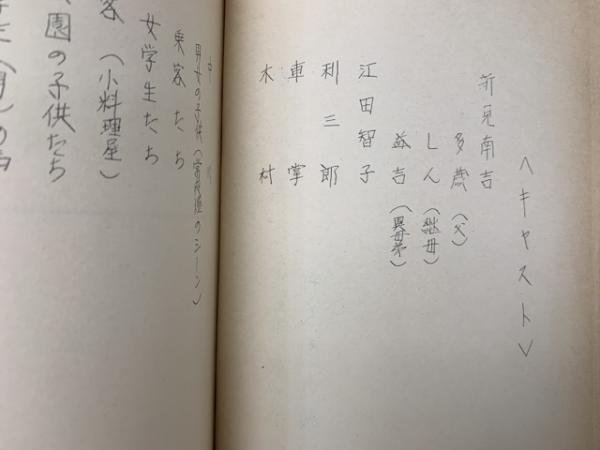 〈キャスト〉
新見南吉
多蔵(父)
しん(継母)
益吉(異母弟)
江田智子
利三郎
車掌
木村
中川
男女の子供(常夜燈のシーン)
乗客たち
女学生たち
客(小料理屋)
園の子供たち